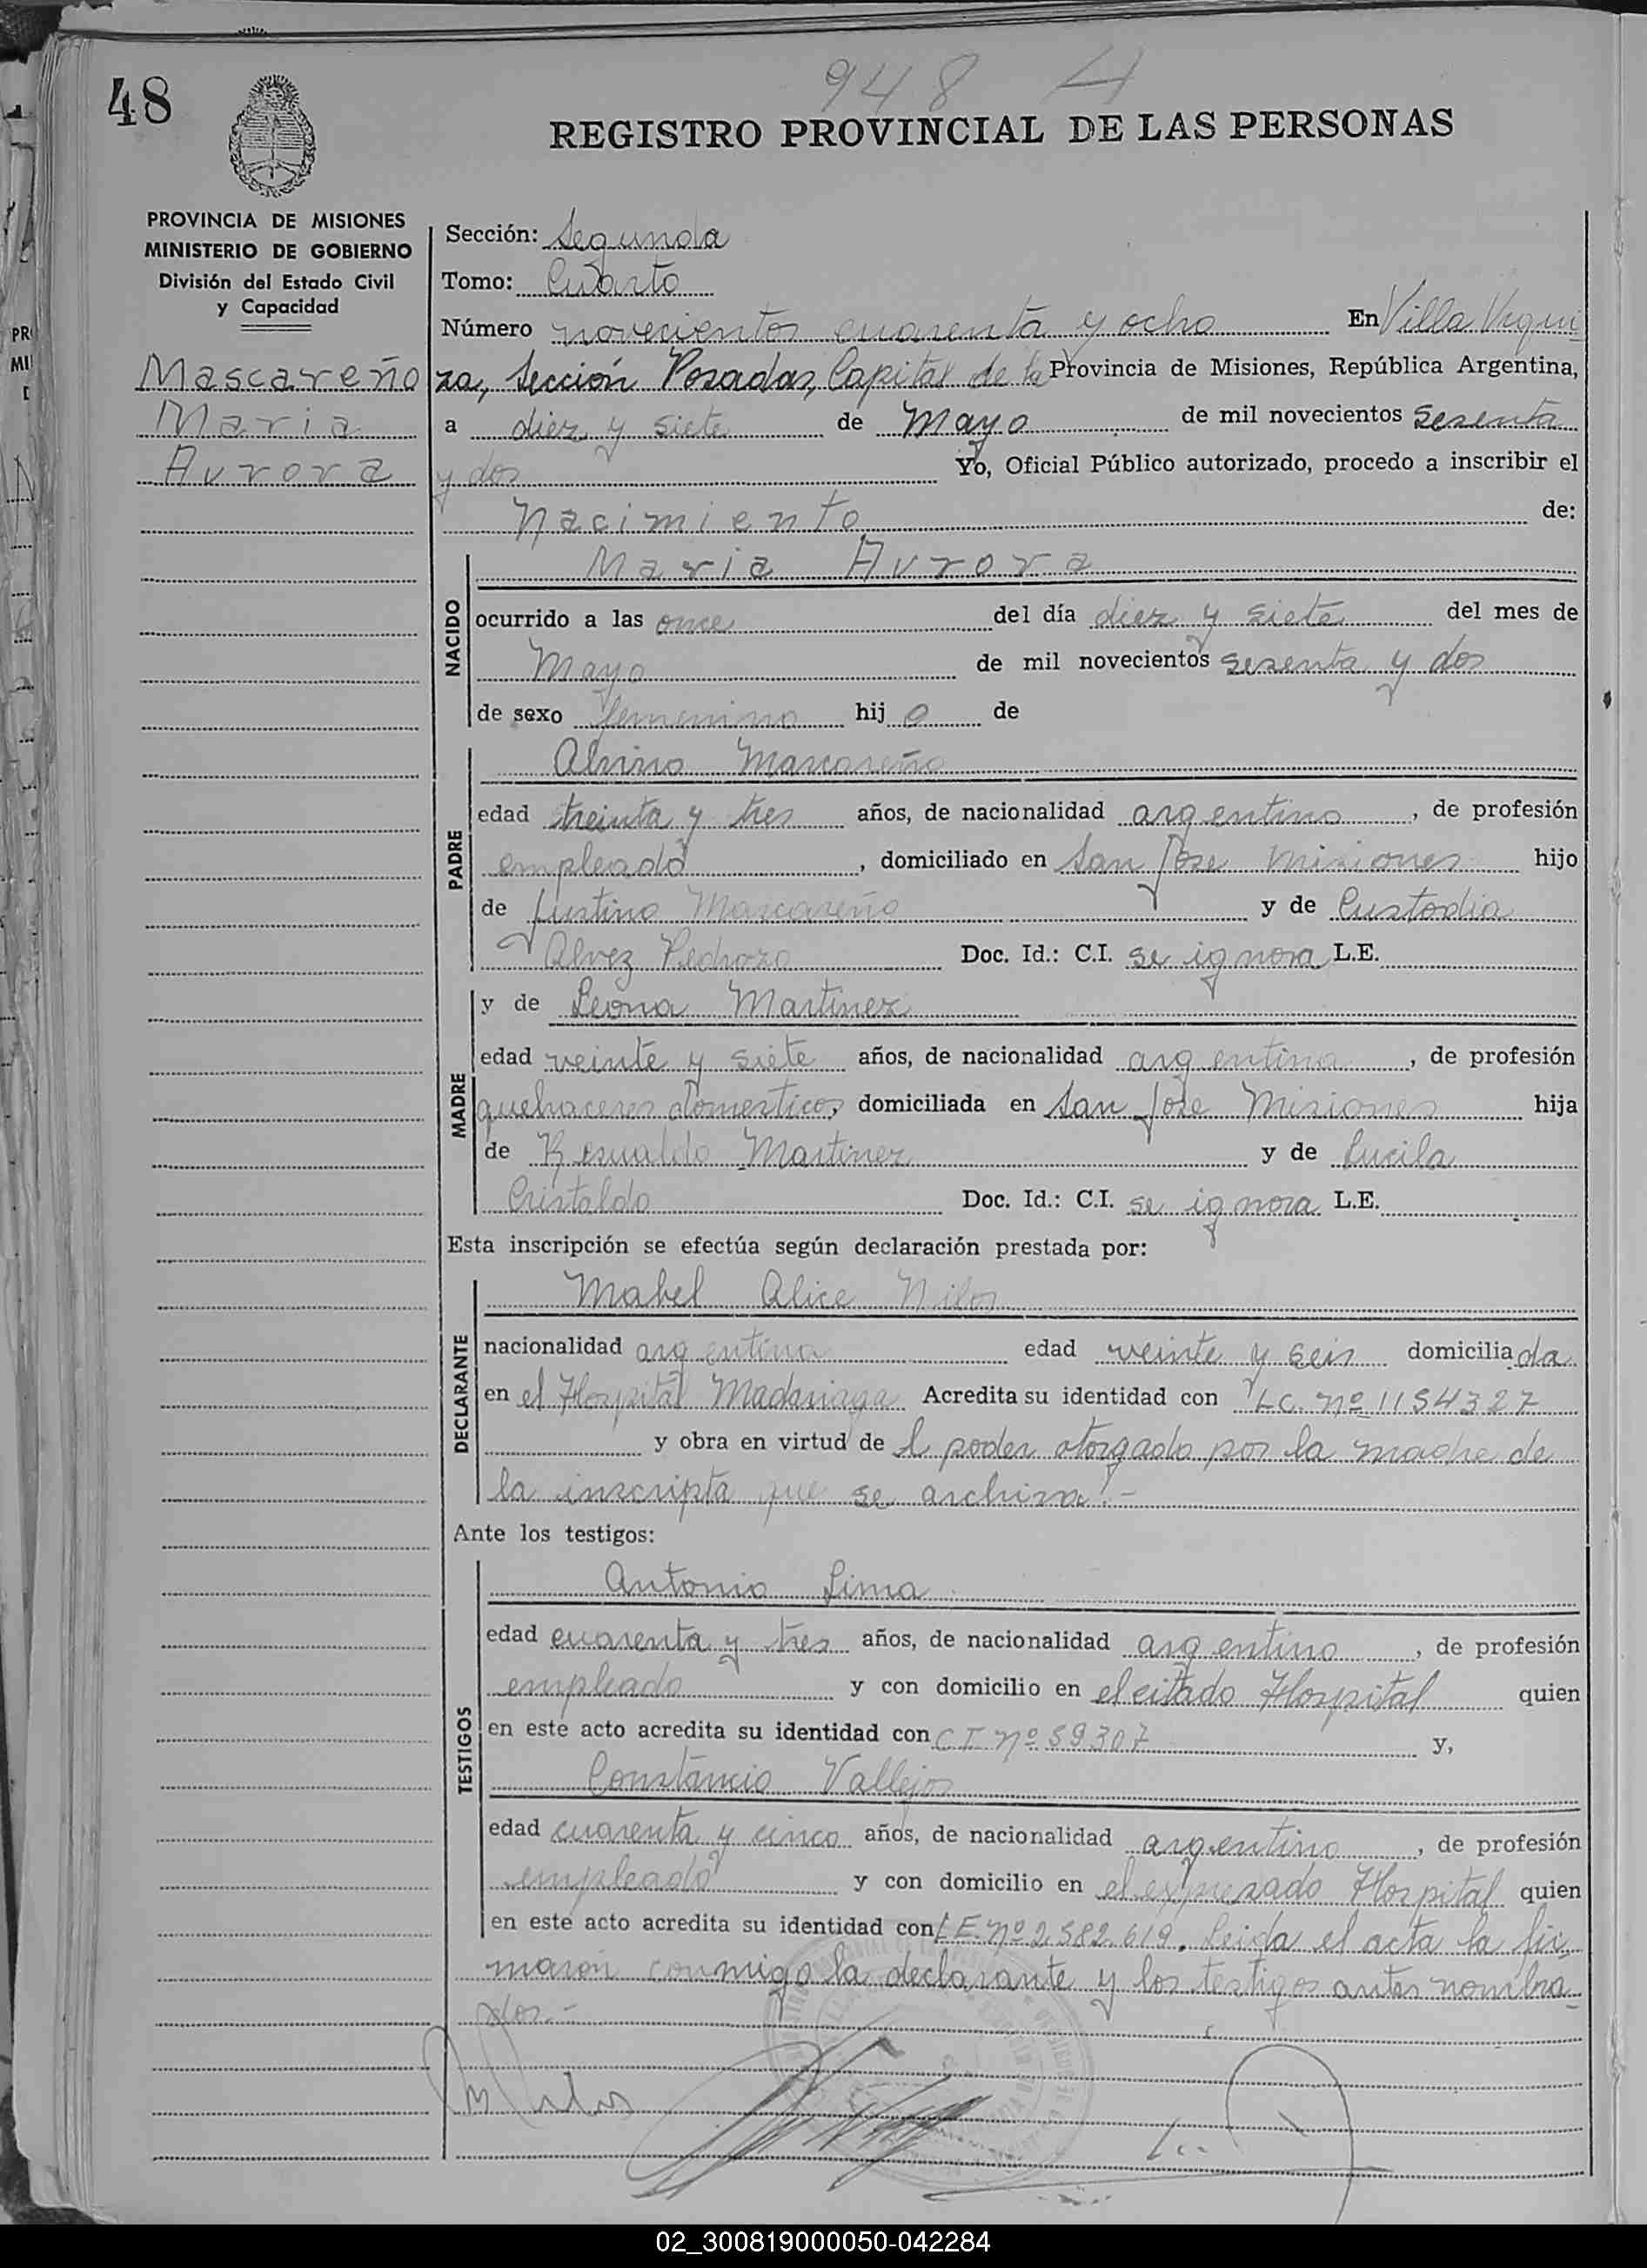 948 4
48
REGISTRO PROVINCIAL DE LAS PERSONAS
PROVINCIA DE MISIONES
MINISTERIO DE GOBIERNO
División del Estado Civil
y Capacidad
Mascareño
Maria
Aurora
Sección: Segunda
Tomo: Cuarto
Número novecientos cuarenta y ocho En Villa Urqui
za, Sección Posadas, Capital de la Provincia de Misiones, República Argentina,
a diez y siete de Mayo de mil novecientos sesenta
y dos Yo, Oficial Público autorizado, procedo a inscribir el
Nacimiento de:
NACIDO
Maria Aurora
ocurrido a las once del día diez y siete del mes de
Mayo de mil novecientos sesenta y dos
de sexo femenino hij a de
PADRE
Mascareño
edad treinta y tres años, de nacionalidad argentino, de profesión
empleado, domiciliado en San Jose Misiones hijo
de Justino Mascareño y de Custodia
Alvez Pedrozo Doc. Id.: C.I. se ignora L.E.
MADRE
y de Leona Martinez
edad veinte y siete años, de nacionalidad argentina, de profesión
quehaceres domesticos, domiciliada en San Jose Misiones hija
de Martinez y de Lucila
Cristaldo Doc. Id.: C.I. se ignora L.E.
Esta inscripción se efectúa según declaración prestada por:
DECLARANTE
Mabel Alice Nilos
nacionalidad argentina edad veinte y seis domicilia da
en el Hospital Madariaga Acredita su identidad con LC. nº 1154327
y obra en virtud de l poder otorgado por la madre de
la inscripta que se archiva.-
Ante los testigos:
TESTIGOS
Antonio Lima
edad cuarenta y tres años, de nacionalidad argentino, de profesión
empleado y con domicilio en el citado Hospital quien
en este acto acredita su identidad con C I nº 59307 y,
Constancio Vallejos
edad cuarenta y cinco años, de nacionalidad argentino, de profesión
empleado y con domicilio en el expresado Hospital quien
en este acto acredita su identidad con L E. nº 2.582.619. Leida el acta la fir
maron conmigo la declarante y los testigos antes nombra
dos.-
02_300819000050-042284